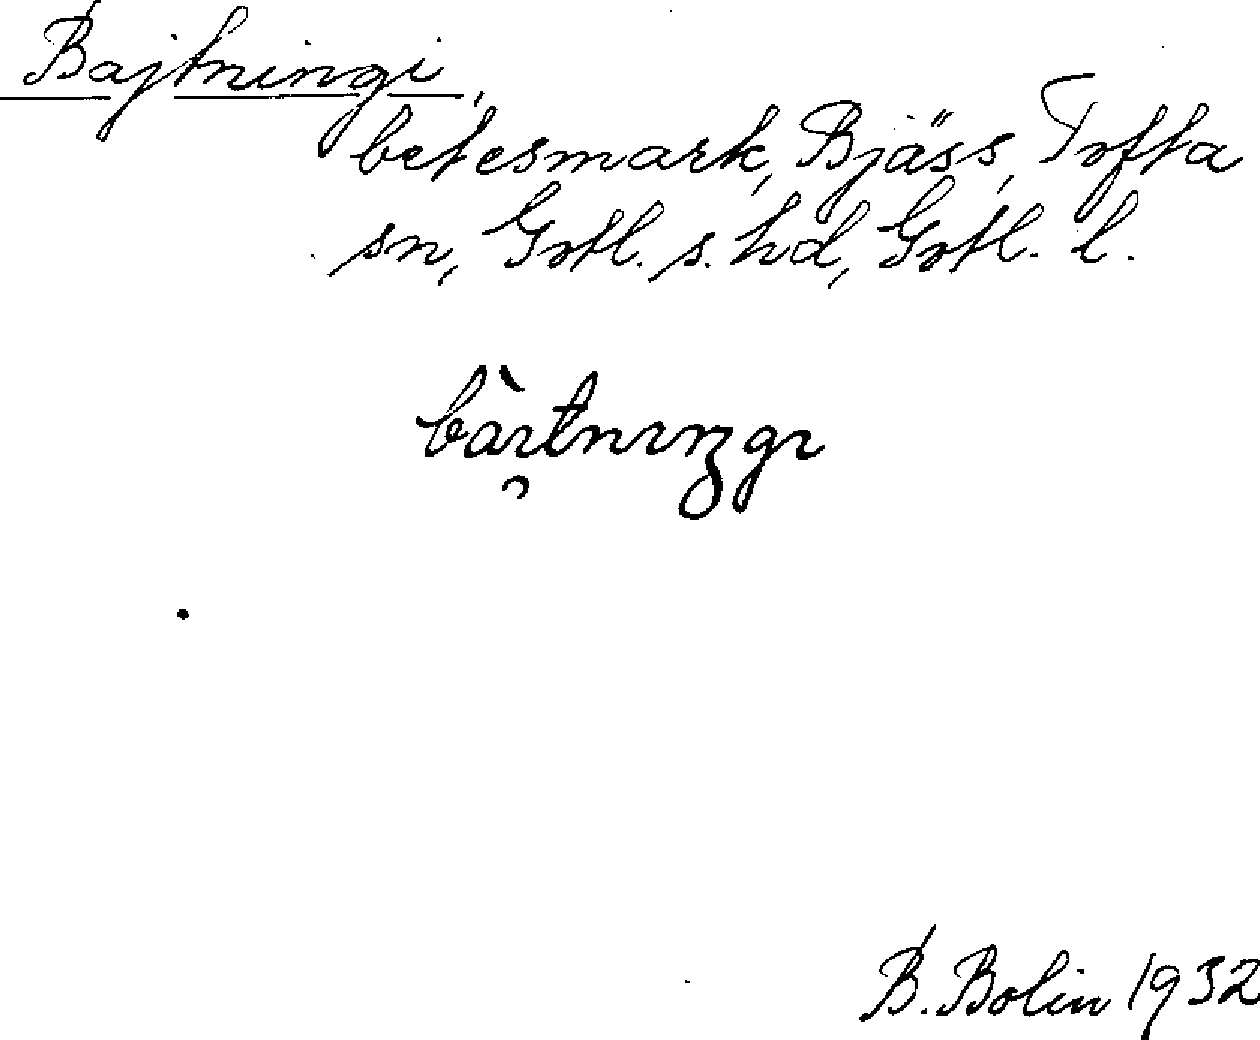 Bajtningi,
betesmark, Bjäss, Tofta
sn, Gotl. s. hd, Gotl. l.
bàı̯tnıŋgı
B. Bolin 1932